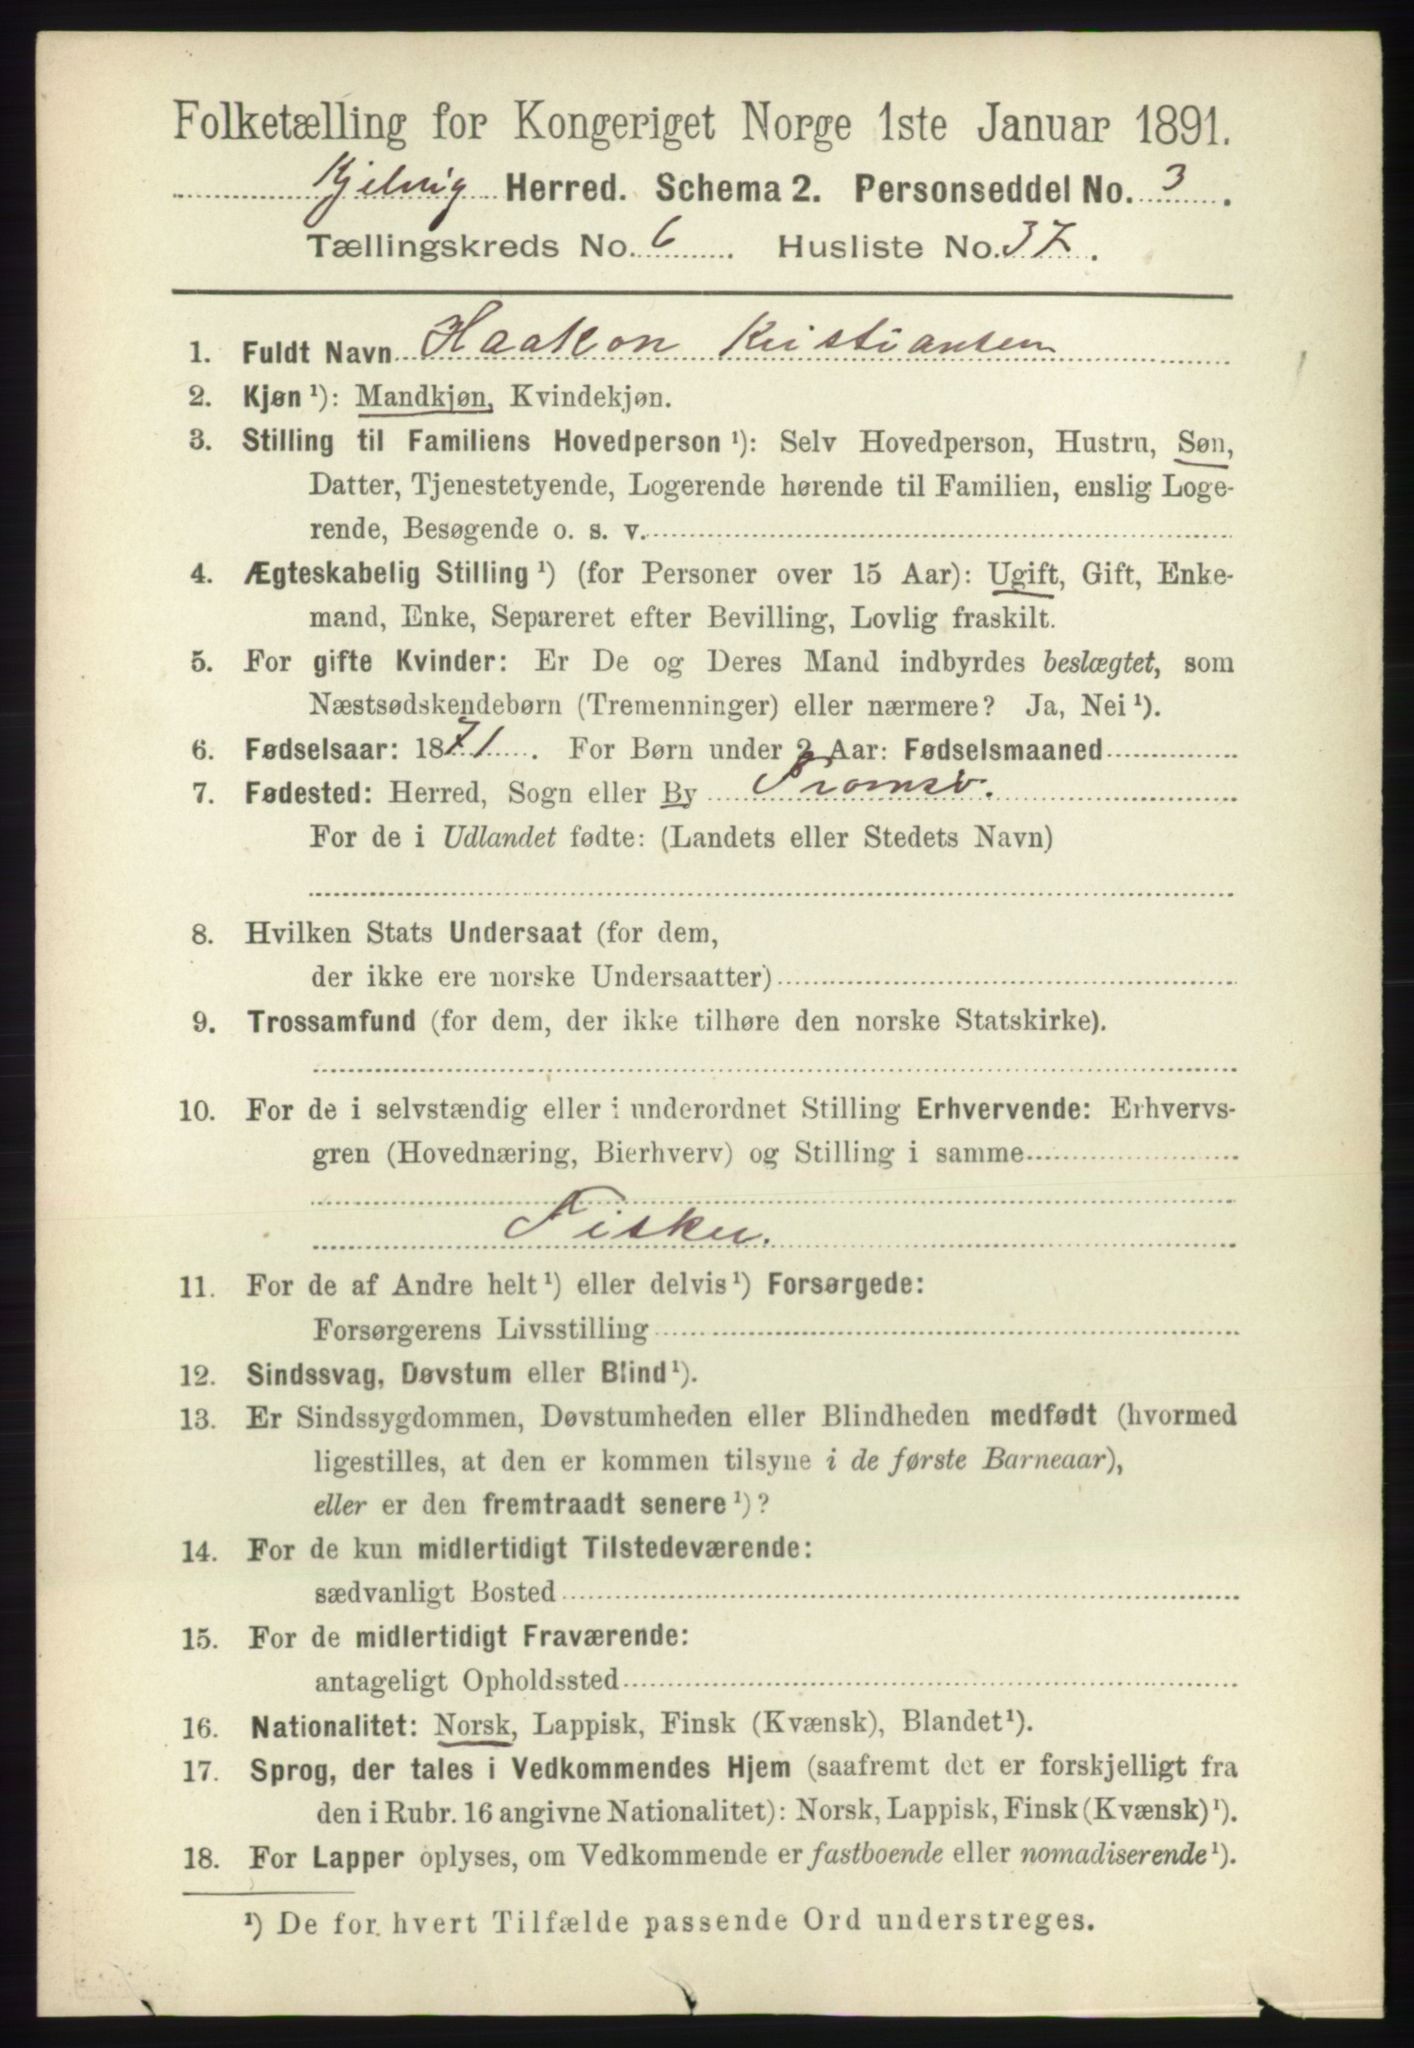 Folketælling for Kongeriget Norge 1ste Januar 1891.
Kjelvig Herred. Schema 2. Personseddel No. 3.
Tællingskreds No. 6. Husliste No. 37.
1. Fuldt Navn Haakon Kristiansen
2. Kjøn ¹): Mandkjøn, Kvindekjøn.
3. Stilling til Familiens Hovedperson ¹): Selv Hovedperson, Hustru, Søn,
Datter, Tjenestetyende, Logerende hørende til Familien, enslig Loge-
rende, Besøgende o. s. v.
4. Ægteskabelig Stilling ¹) (for Personer over 15 Aar): Ugift, Gift, Enke-
mand, Enke, Separeret efter Bevilling, Lovlig fraskilt.
5. For gifte Kvinder: Er De og Deres Mand indbyrdes beslægtet, som
Næstsødskendebørn (Tremenninger) eller nærmere? Ja, Nei ¹).
6. Fødselsaar: 1871. For Børn under 2 Aar: Fødselsmaaned
7. Fødested: Herred, Sogn eller By Tromsø.
For de i Udlandet fødte: (Landets eller Stedets Navn)
8. Hvilken Stats Undersaat (for dem,
der ikke ere norske Undersaatter)
9. Trossamfund (for dem, der ikke tilhøre den norske Statskirke).
10. For de i selvstændig eller i underordnet Stilling Erhvervende: Erhvervs-
gren (Hovednæring, Bierhverv) og Stilling i samme
Fisker.
11. For de af Andre helt ¹) eller delvis ¹) Forsørgede:
Forsørgerens Livsstilling
12. Sindssvag, Døvstum eller Blind ¹).
13. Er Sindssygdommen, Døvstumheden eller Blindheden medfødt (hvormed
ligestilles, at den er kommen tilsyne i de første Barneaar),
eller er den fremtraadt senere ¹)?
14. For de kun midlertidigt Tilstedeværende:
sædvanligt Bosted
15. For de midlertidigt Fraværende:
antageligt Opholdssted
16. Nationalitet: Norsk, Lappisk, Finsk (Kvænsk), Blandet ¹).
17. Sprog, der tales i Vedkommendes Hjem (saafremt det er forskjelligt fra
den i Rubr. 16 angivne Nationalitet): Norsk, Lappisk, Finsk (Kvænsk) ¹).
18. For Lapper oplyses, om Vedkommende er fastboende eller nomadiserende ¹).
¹) De for hvert Tilfælde passende Ord understreges.